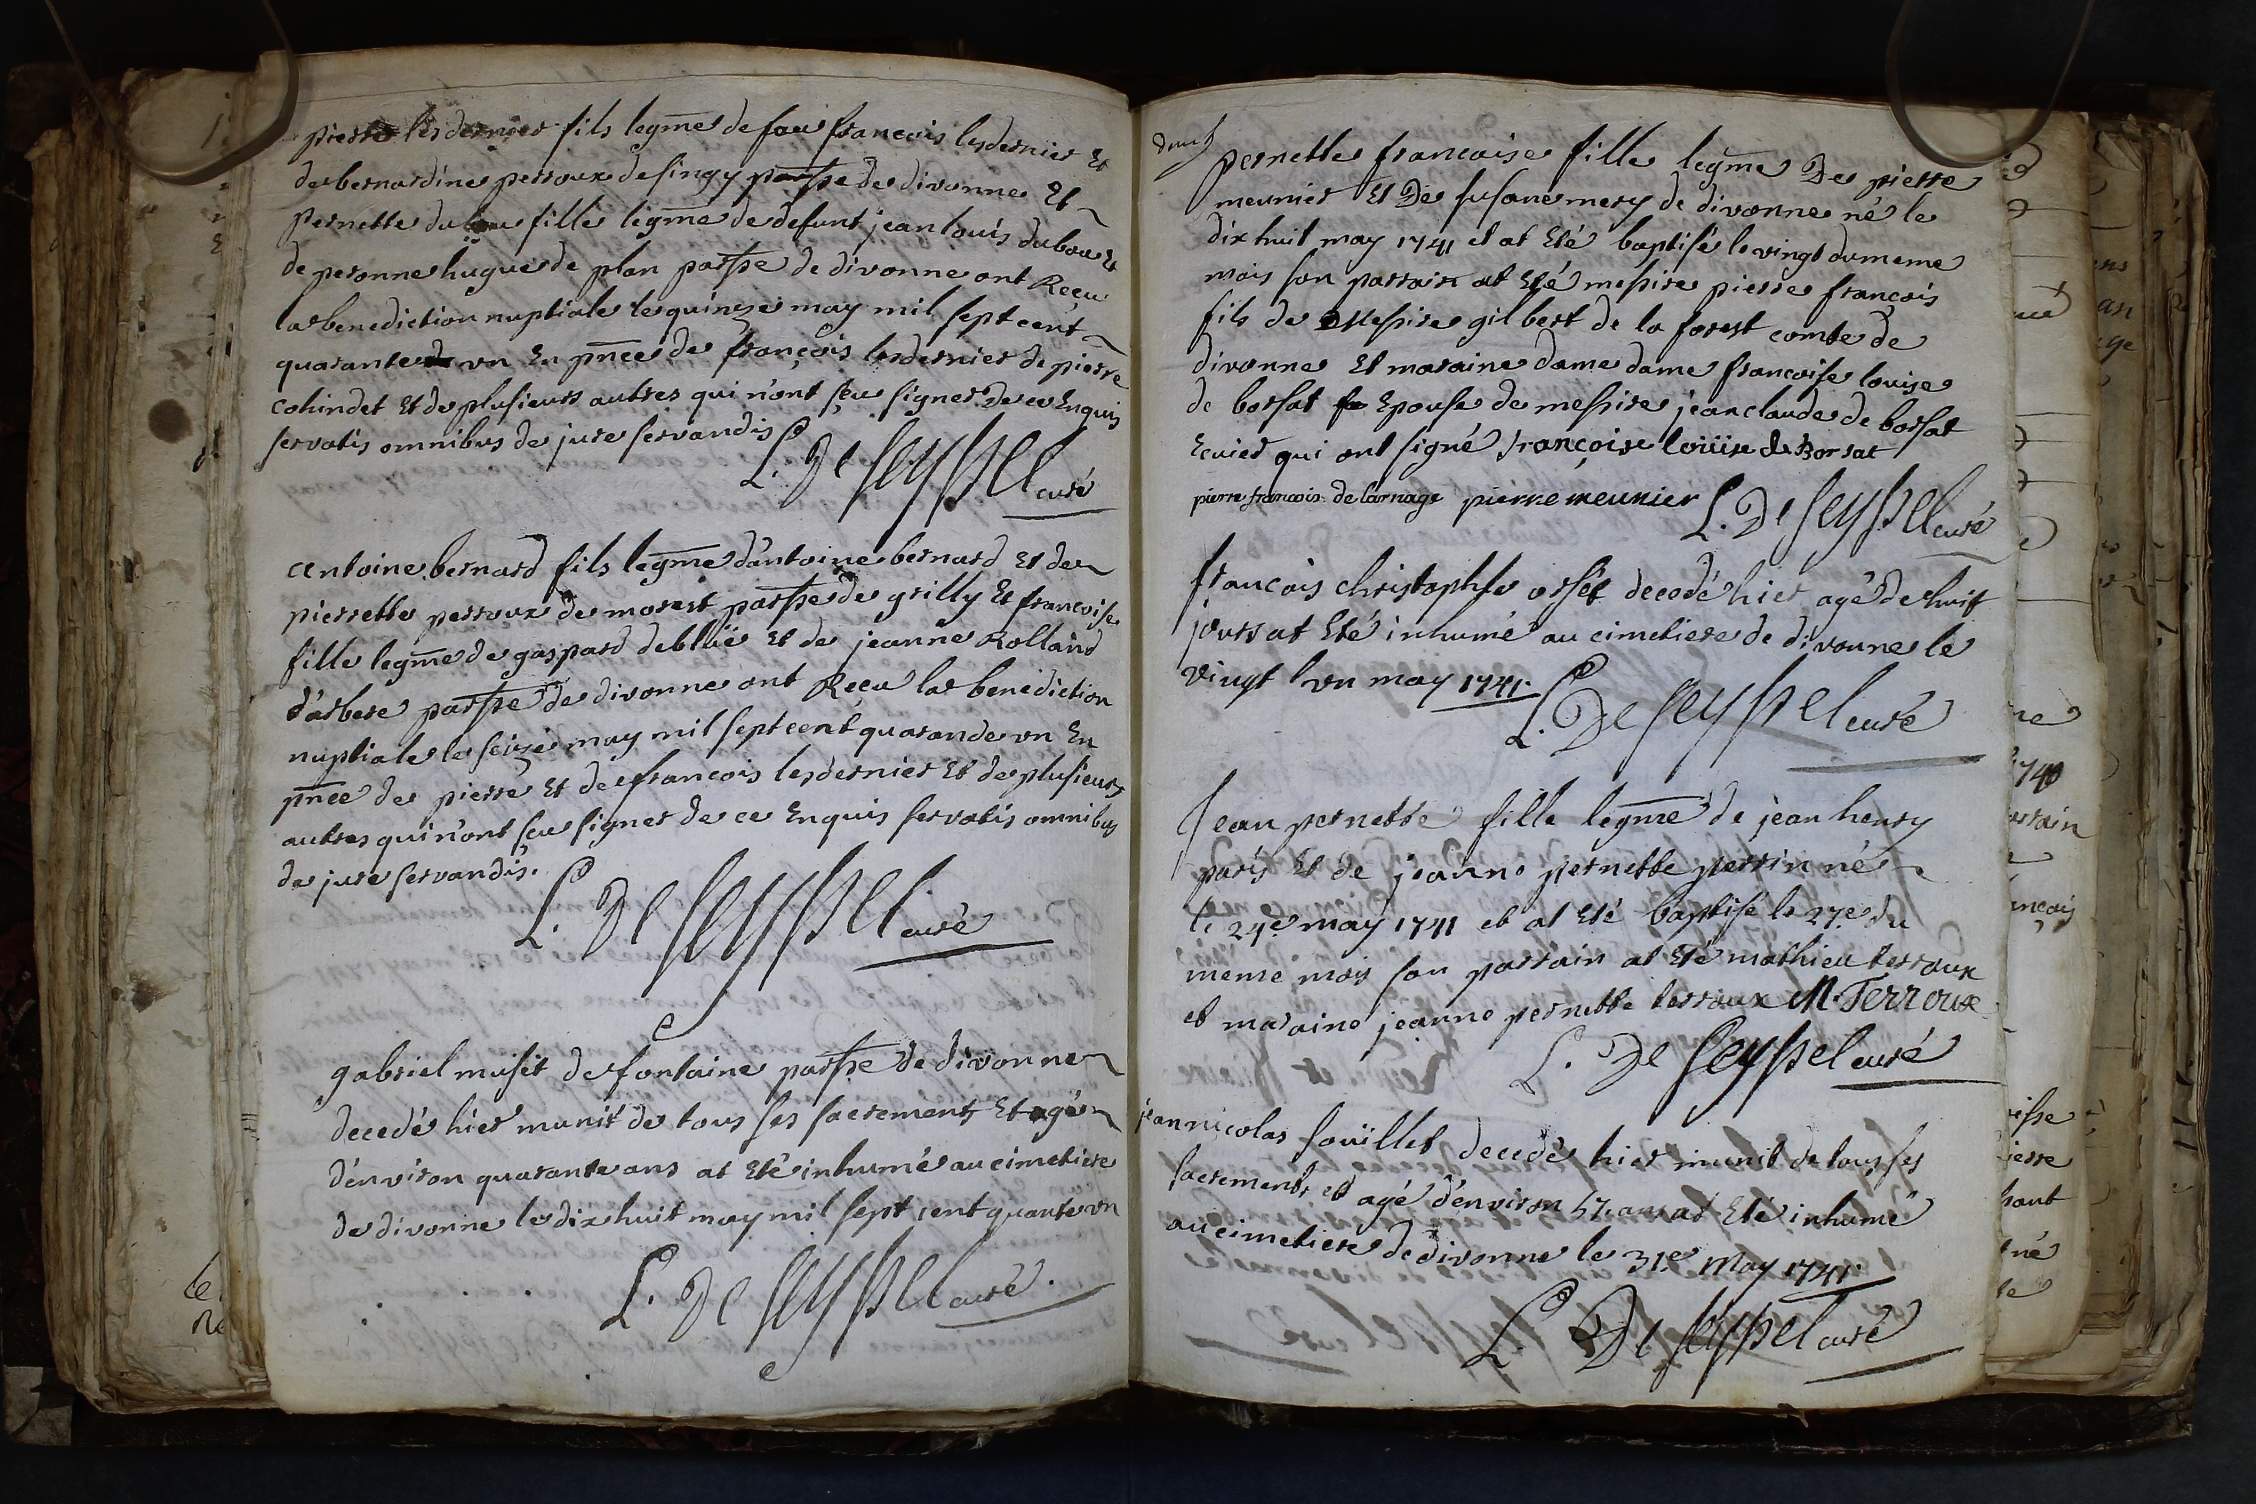 pierre lesdernier fils legme de feu francois lesdernier Et
de bernardine perroux de singy parsse de divonne Et
Pernette dubou fille legme de defunt jean louis dubou Et
de peronne hugue de plan parsse de divonne ont Receu
la benediction nuptiale le quinze may mil sept cent
quarante un En pnce de françois lesdernier de pierre
cohindet Et de plusieurs autres qui n'ont sçu signer De ce Enquis
servatis omnibus de jure servandis
L. De seyssel curé
antoine bernard fils legme d'antoine bernard Et de
pierrette perroux de morest parsse de grilly Et francoise
fille legme de gaspard deblüe Et de jeanne Rolland
d'arbere parsse de divonne ont Receu la benediction
nuptiale le seize may mil sept cent quarande un En
pnce de pierre Et de francois lesdernier Et de plusieurs
autres qui n'ont sceu signer de ce Enquis servatis omnibus
de jure servandis.
L. De seyssel curé
gabriel musit de fontaine parsse de divonne
decedé hier munit de tous ses sacrements Et agé
d'environ quarante ans at Eté inhumé au cimetiere
de divonne le dix huit may mil sept cent quante un
L. De seyssel curé.
pernette francoise fille legme De pierre
meunier Et De susane mery de divonne né le
dix huit may 1741 et at Eté baptisé le vingt du meme
mois son parrain at Eté messire pierre françois
fils de Messire gilbert de la forest comte de
divonne Et maraine dame dame francoise louise
de borsat Epouse de messire jean claude de borsat
Ecuier qui ont signé françoise loüise de Borsat
pierre francois de larnage pierre meunier L. De seyssel curé
francois christophle orset decedé hier agé de huit
jours at Eté inhumé au cimetiere de divonne le
vingt un may 1741.
L. De seyssel curé
Jean pernette fille legme de jean henry
paris Et de jeanne pernette perrin né
le 24e may 1741 et at Eté baptisé le 27e du
meme mois son parrain at Eté mathieu terroux
et maraine jeanne pernette terroux M. Terroux
L. De seyssel curé
jean nicolas souïllet decedé hier munit de tous ses
sacrements et agé d'environ 57 ans at Eté inhumé
au cimetiere de divonne le 31e may 1741.
L. De seyssel curé